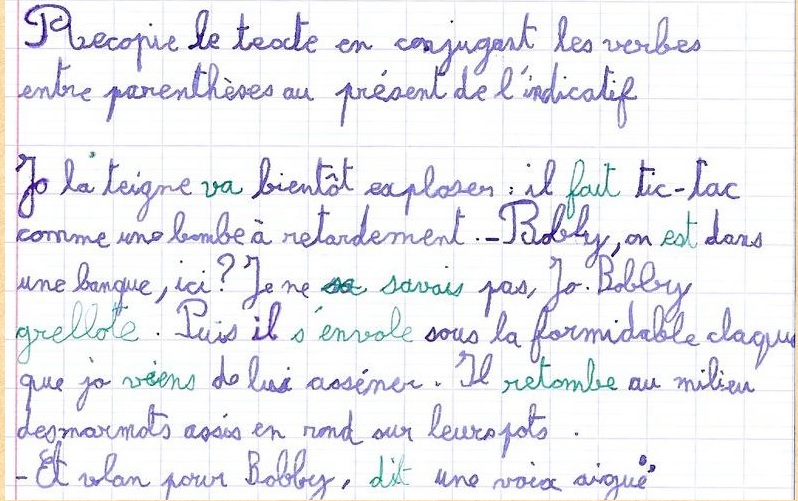 Recopie le texte en conjugant les verbes
entre parenthèses au présent de l'indicatif
Jo la teigne va bientôt exploser : il fait tic-tac
comme une bombe à retardement. - Bobby, on est dans
une banque, ici ? Je ne savais pas, Jo. Bobby
grellote. Puis il s'envole sous la formidable claque
que jo viens de lui asséner. Il retombe au milieu
des marmots assis en rond sur leurs pots.
- Et vlan pour Bobby, dit une voix aiguë